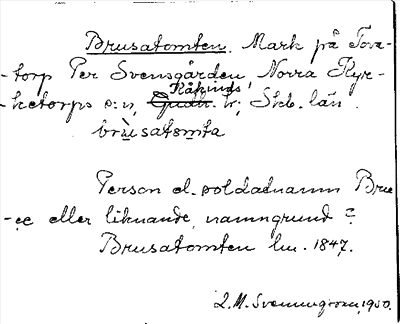 Brusatomten. Mark på Tova-
-torp Per Svensgården, Norra Kyr-
-ketorps s:n, Kåkinds h; Skb. län.
brùsatomta
Person el. soldatnamn Brus-
-ee eller liknande namngrund?
Brusatomten lm. 1847.
L.M. Svenungsson, 1950.